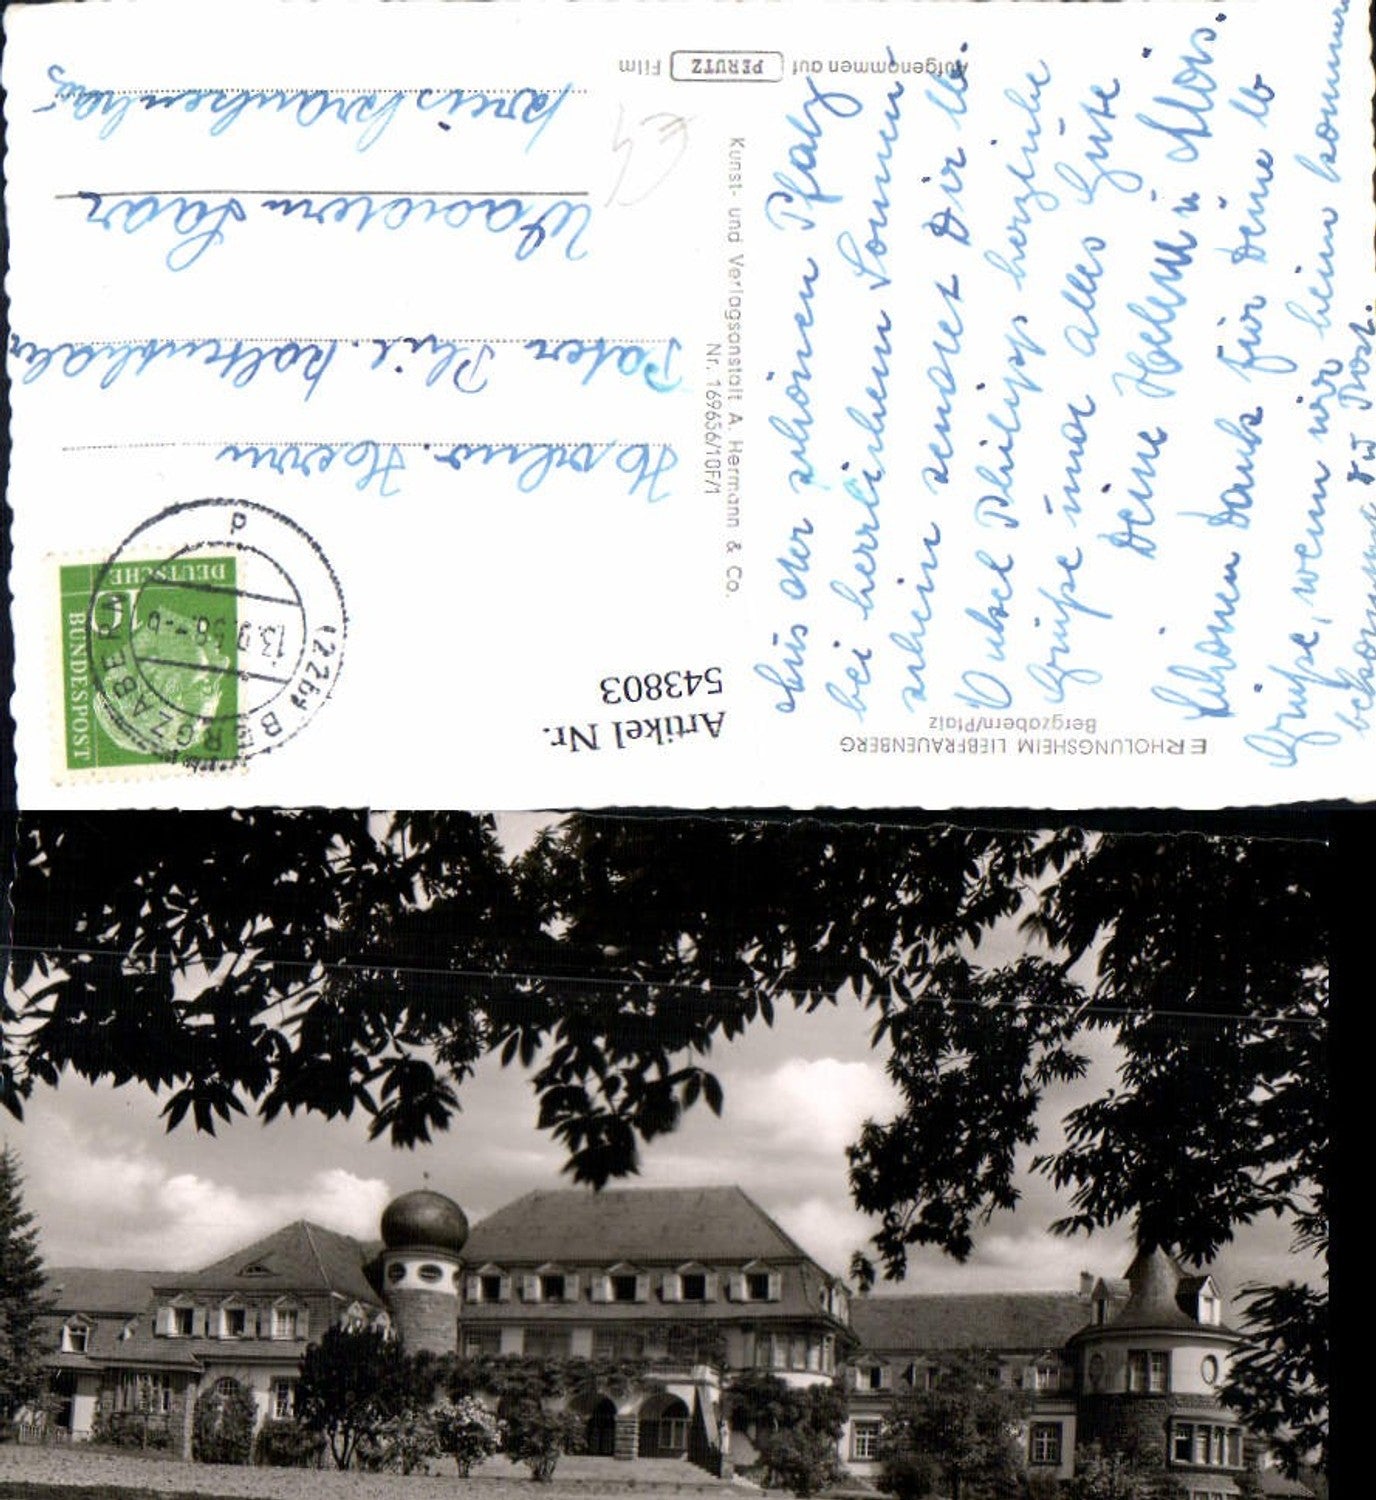 ERHOLUNGSHEIM LIEBFRAUENBERG
Bergzabern/Pfalz
Aus der schönen Pfalz
bei herrlichem Sonnen
schein sendet Dir lb.
Onkel Philipp herzliche
Grüße und alles Gute
Deine Helene u Alois.
Schönen Dank für Deine lb
Grüße, wenn wir heim kommen
bekommst Du Post.
Kunst- und Verlagsanstalt A. Hermann & Co.
Nr. 169656/10F/1
Aufgenommen auf PERUTZ Film
Artikel Nr.
543803
(22b) BERGZABERN
13.9.58.
d
DEUTSCHE
BUNDESPOST
10
Hochw. Herrn
Pater Phil.
Wadern Saar